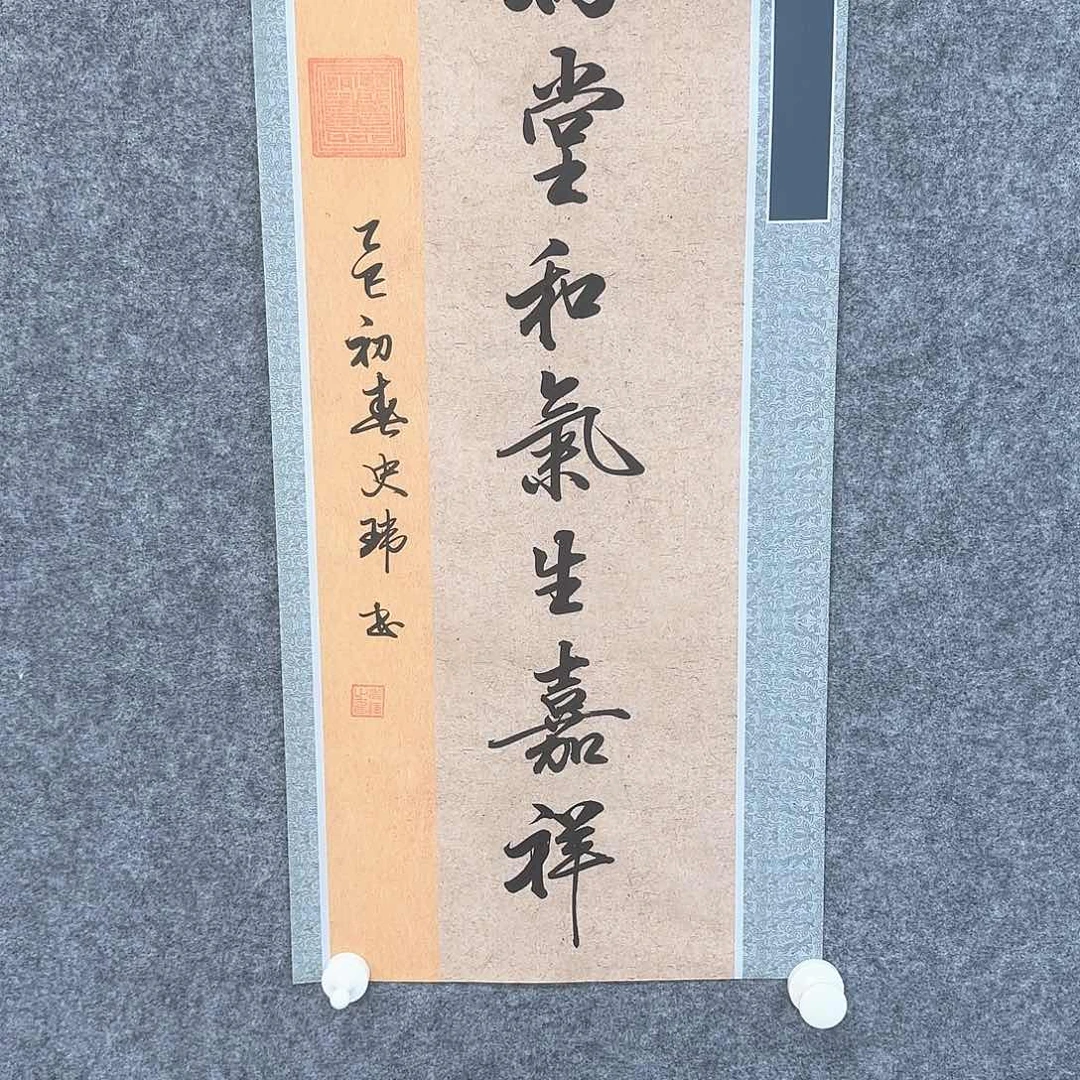 堂和氣生嘉祥
乙巳初春史瑋書